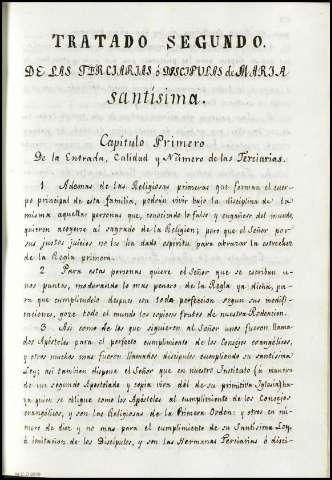 TRATADO SEGUNDO.
DE LAS TERCIARIAS ó DISCIPULAS de MARIA
santísima.
Capitulo Primero
De la Entrada, Calidad y Número de las Terciarias.
1 Ademas de las Religiosas primeras que forman el cuer-
po principal de esta familia, podrán vivir bajo la disciplina de la
misma aquellas personas que, conociendo lo falso y engañoso del mundo,
quieren acogerse al sagrado de la Religion; pero que el Señor por
sus justos juicios no les ha dado espiritu para abrazar la estrechez
de la Regla primera.
2 Para estas personas quiere el Señor que se escriban u-
nos puntos, moderando lo mas penoso de la Regla ya dicha, pa-
ra que cumpliendolo despues con toda perfeccion segun sus modifi-
caciones, goze todo el mundo los copiosos frutos de nuestra Redencion.
3 Asi como de los que siguieron al Señor unos fueron llama-
dos Apóstoles para el perfecto cumplimiento de los Consejos evangélicos,
y otros muchos mas fueron llamados discipulos cumpliendo su santisima
Ley; asi tambien dispone el Señor que en nuestro Instituto (á manera
de un segundo Apostolado y copia viva del de su primitiva Iglesia) ha-
ya quien se obligue como los Apóstoles al cumplimiento de los Consejos
evangélicos, y son las Religiosas de la Primera Orden; y otras en nú-
mero de diez y no mas para el cumplimiento de su Santisima Ley,
á imitacion de los Discipulos, y son las Hermanas Terciarias ó disci-